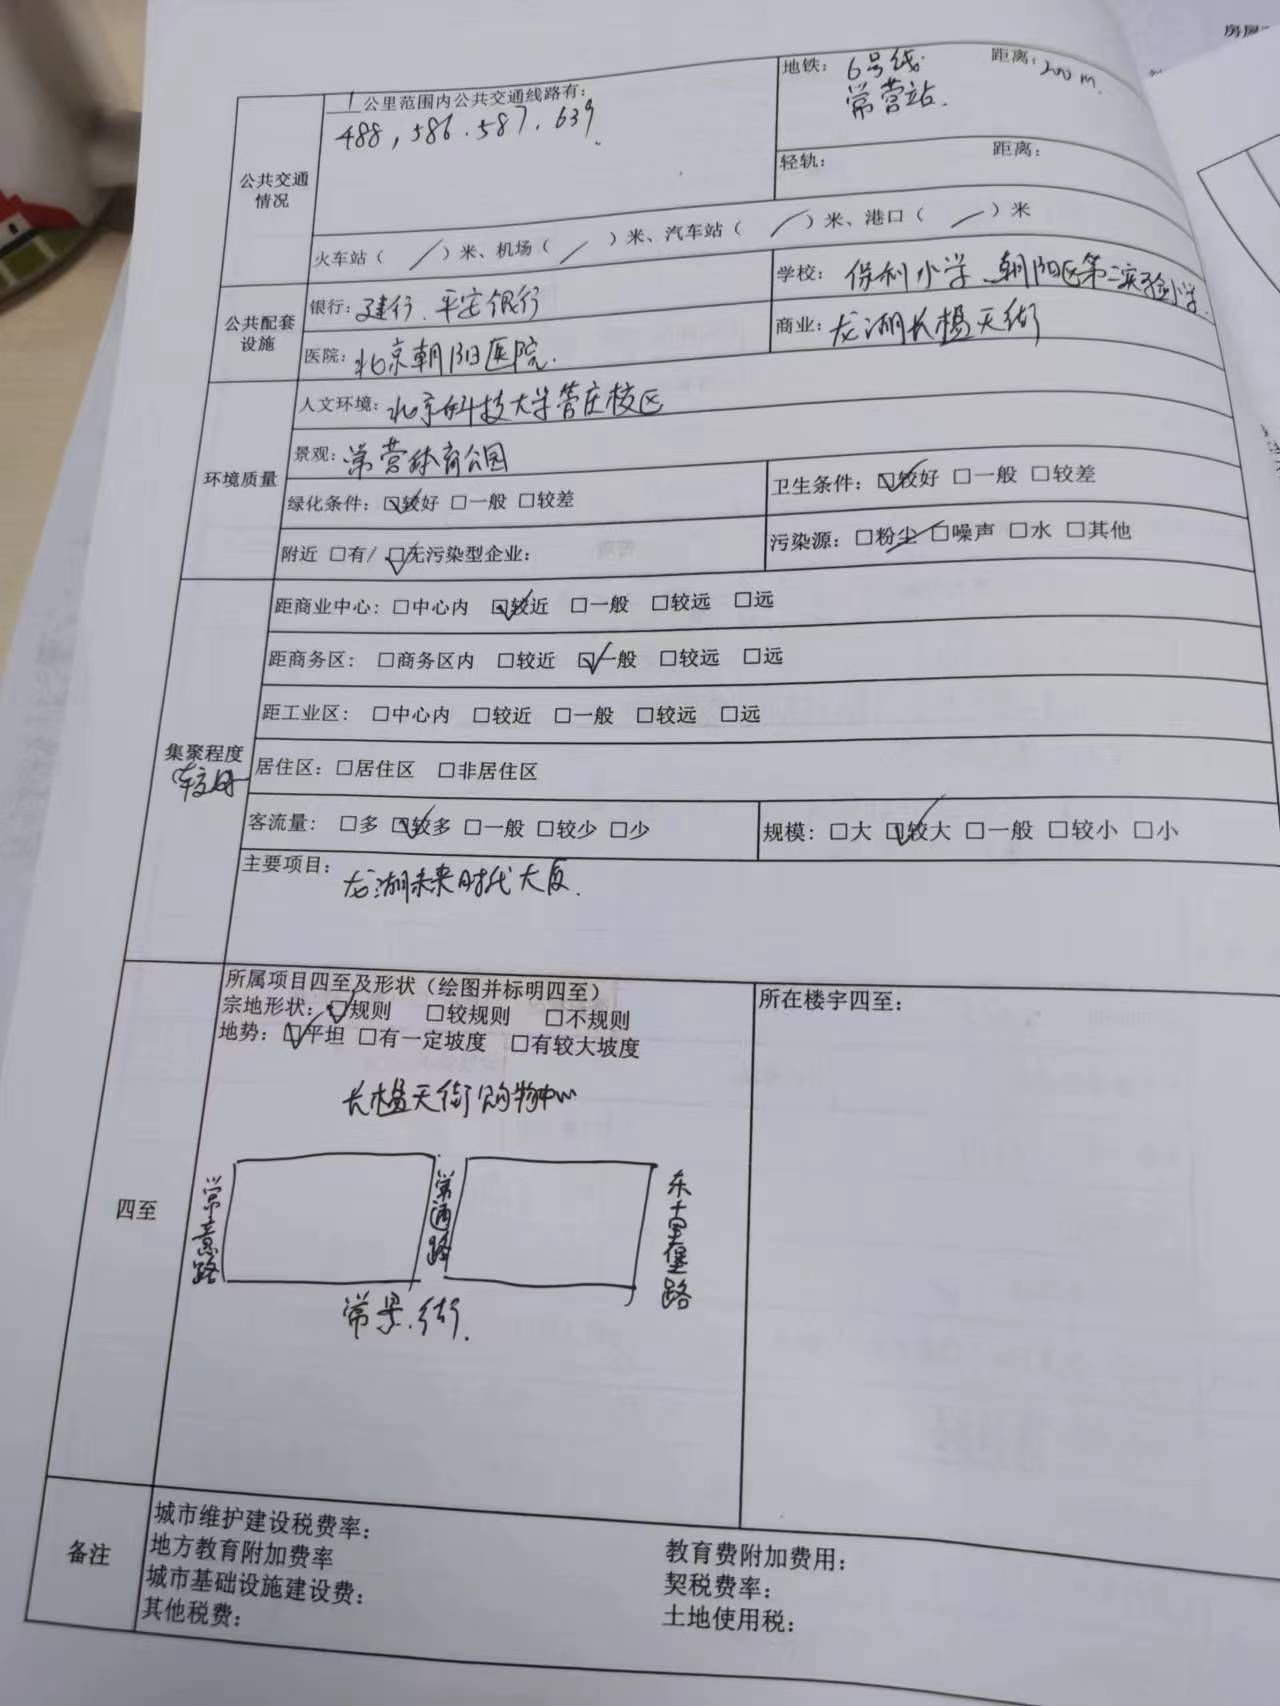 房屋
1公里范围内公共交通线路有:
488, 586. 587. 639
地铁: 6号线 距离: 200m.
常营站.
公共交通
情况
轻轨: 距离:
火车站( / )米、机场( / )米、汽车站( / )米、港口( / )米
公共配套
设施
银行: 建行、平安银行
学校: 保利小学、朝阳区第二实验小学
医院: 北京朝阳医院.
商业: 龙湖长楹天街
环境质量
人文环境: 北京科技大学管庄校区
景观: 常营体育公园
绿化条件: ☑较好 □一般 □较差
卫生条件: ☑较好 □一般 □较差
附近 □有/ ☑无污染型企业:
污染源: □粉尘 □噪声 □水 □其他
集聚程度
较好
距商业中心: □中心内 ☑较近 □一般 □较远 □远
距商务区: □商务区内 □较近 ☑一般 □较远 □远
距工业区: □中心内 □较近 □一般 □较远 □远
居住区: □居住区 □非居住区
客流量: □多 ☑较多 □一般 □较少 □少
规模: □大 ☑较大 □一般 □较小 □小
主要项目: 龙湖未来时代大厦.
四至
所属项目四至及形状(绘图并标明四至)
宗地形状: ☑规则 □较规则 □不规则
地势: ☑平坦 □有一定坡度 □有较大坡度
长楹天街购物中心
常意路
常通路
东十里堡路
常景街.
所在楼宇四至:
备注
城市维护建设税费率:
地方教育附加费率
城市基础设施建设费:
其他税费:
教育费附加费用:
契税费率:
土地使用税: